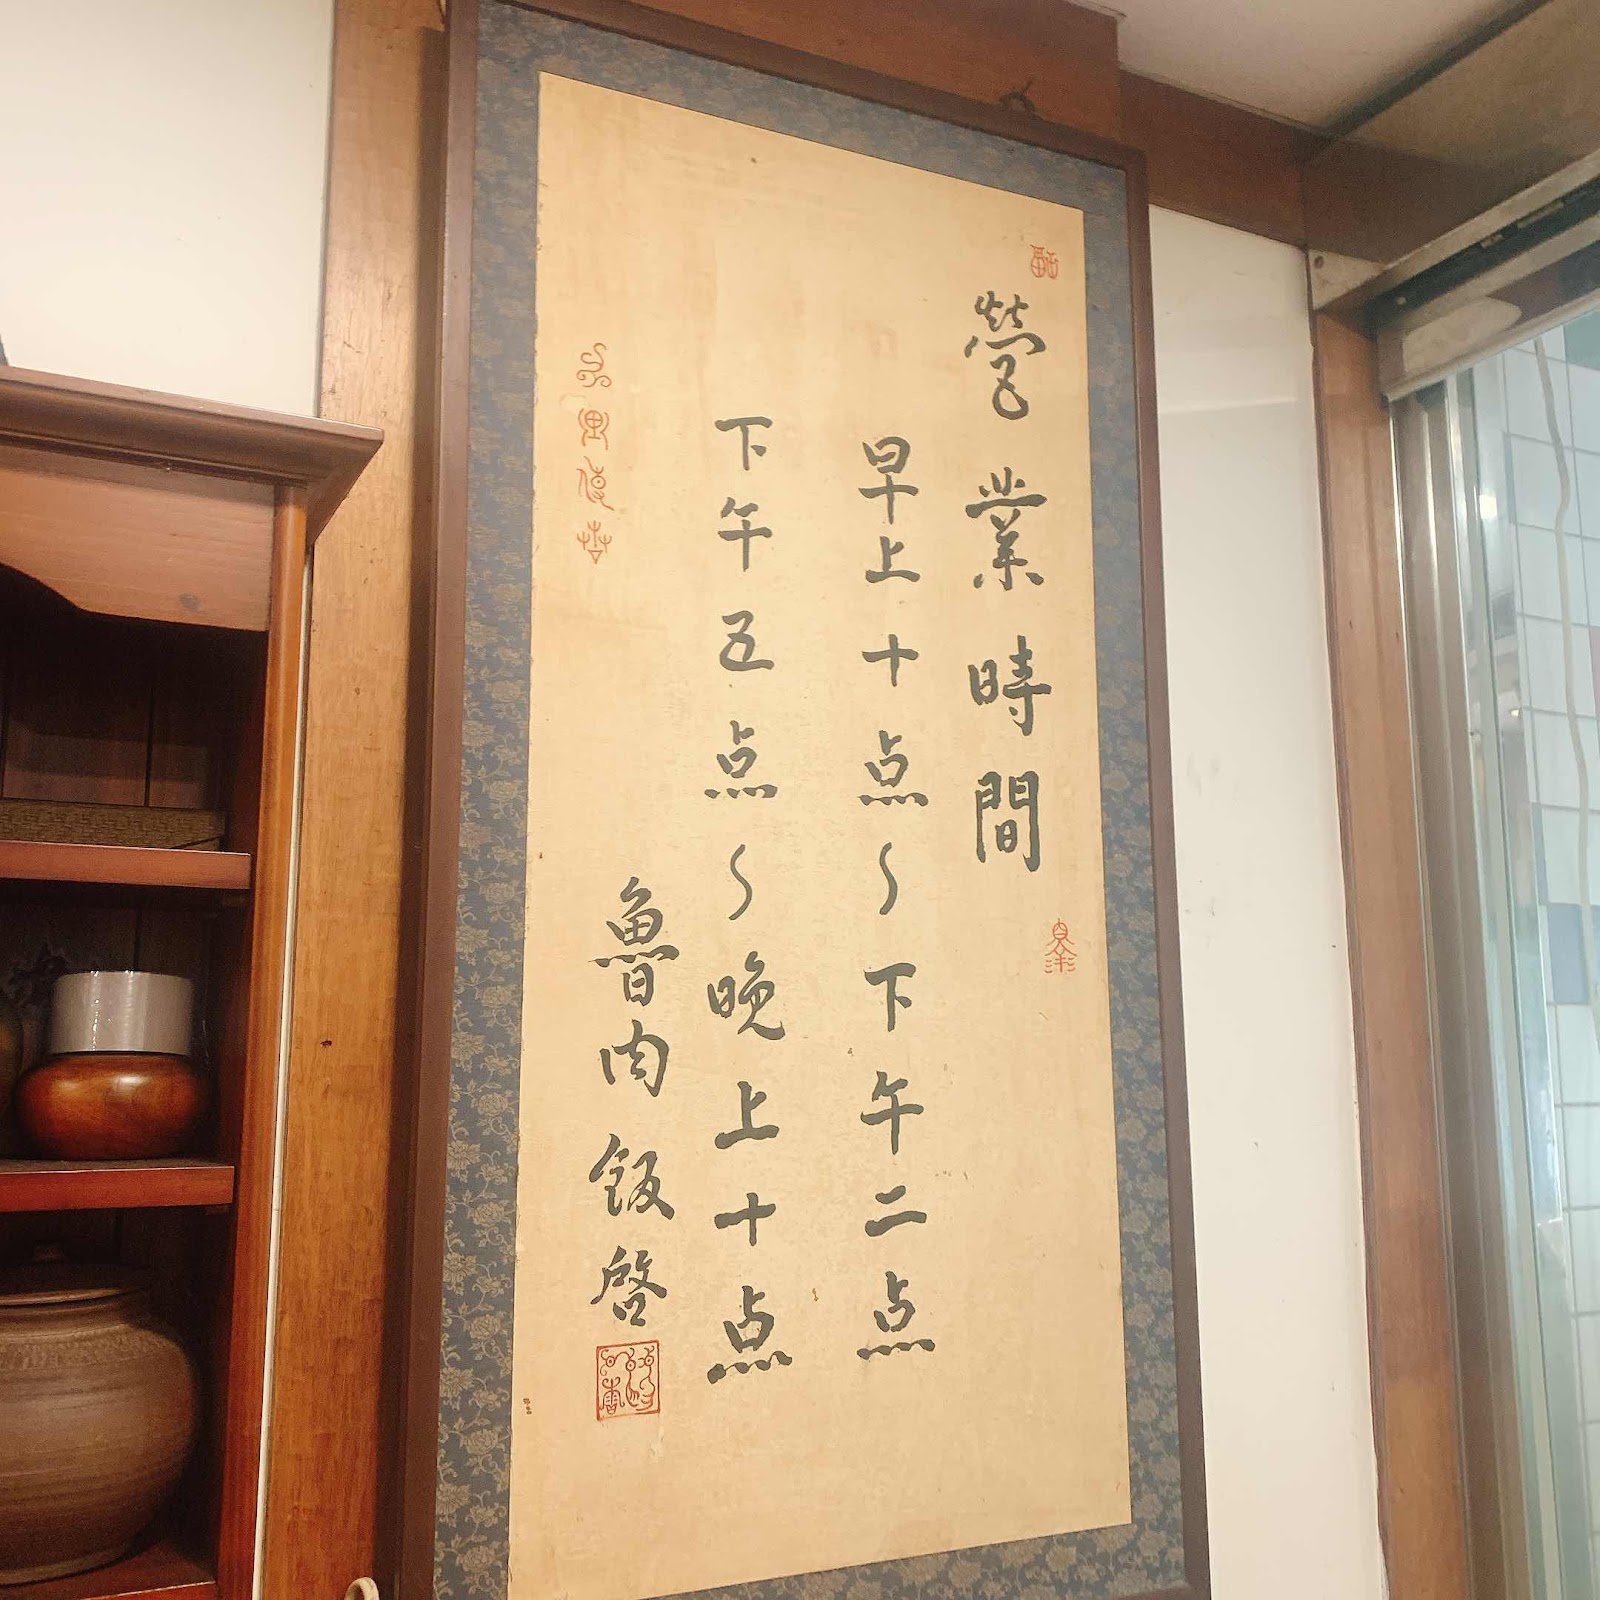 營業時間
早上十点～下午二点
下午五点～晚上十点
魯肉飯啓